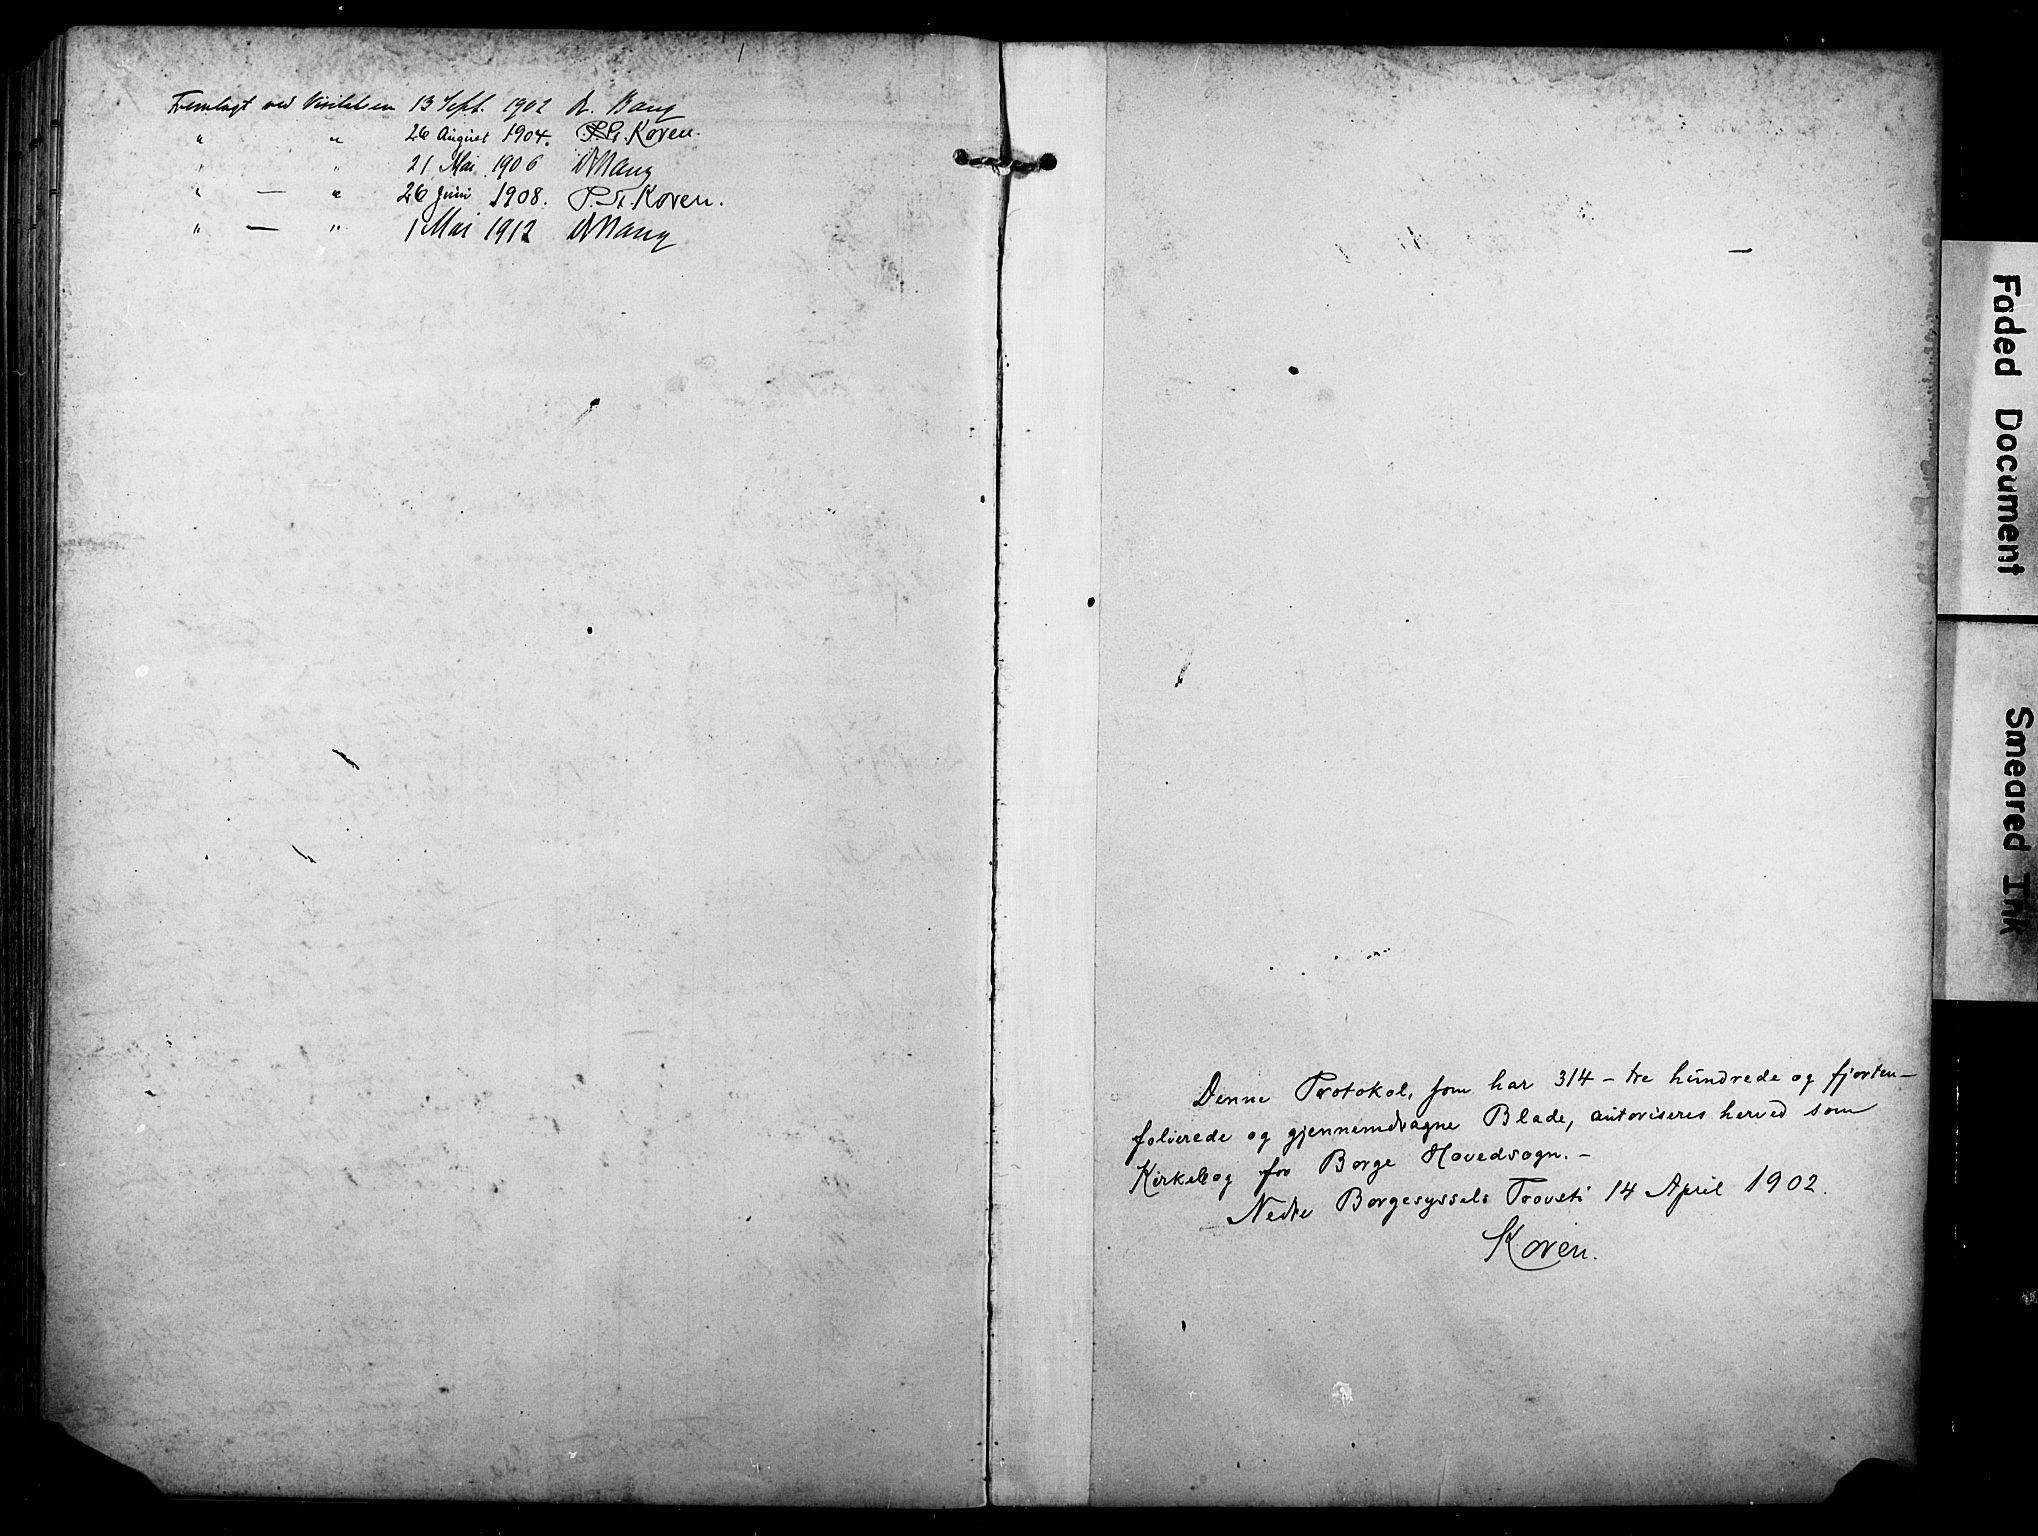 Fremlagt ved Visitatsen 13 Sept. 1902 A. Bang
" " 26 August 1904. P. Fr. Koren.
" " 21 Mai 1906 A Bang
" — " 26 Juni 1908. P. Fr. Koren.
" — " 1 Mai 1912 A Bang
Denne Protokol, som har 314 – tre hundrede og fjorten –
folierede og gjennemdragne Blade, autoriseres herved som
Kirkebog for Borge Hovedsogn. –
Nedre Borgesyssels Provsti 14 April 1902.
Koren.
Faded Document
Smeared Ink